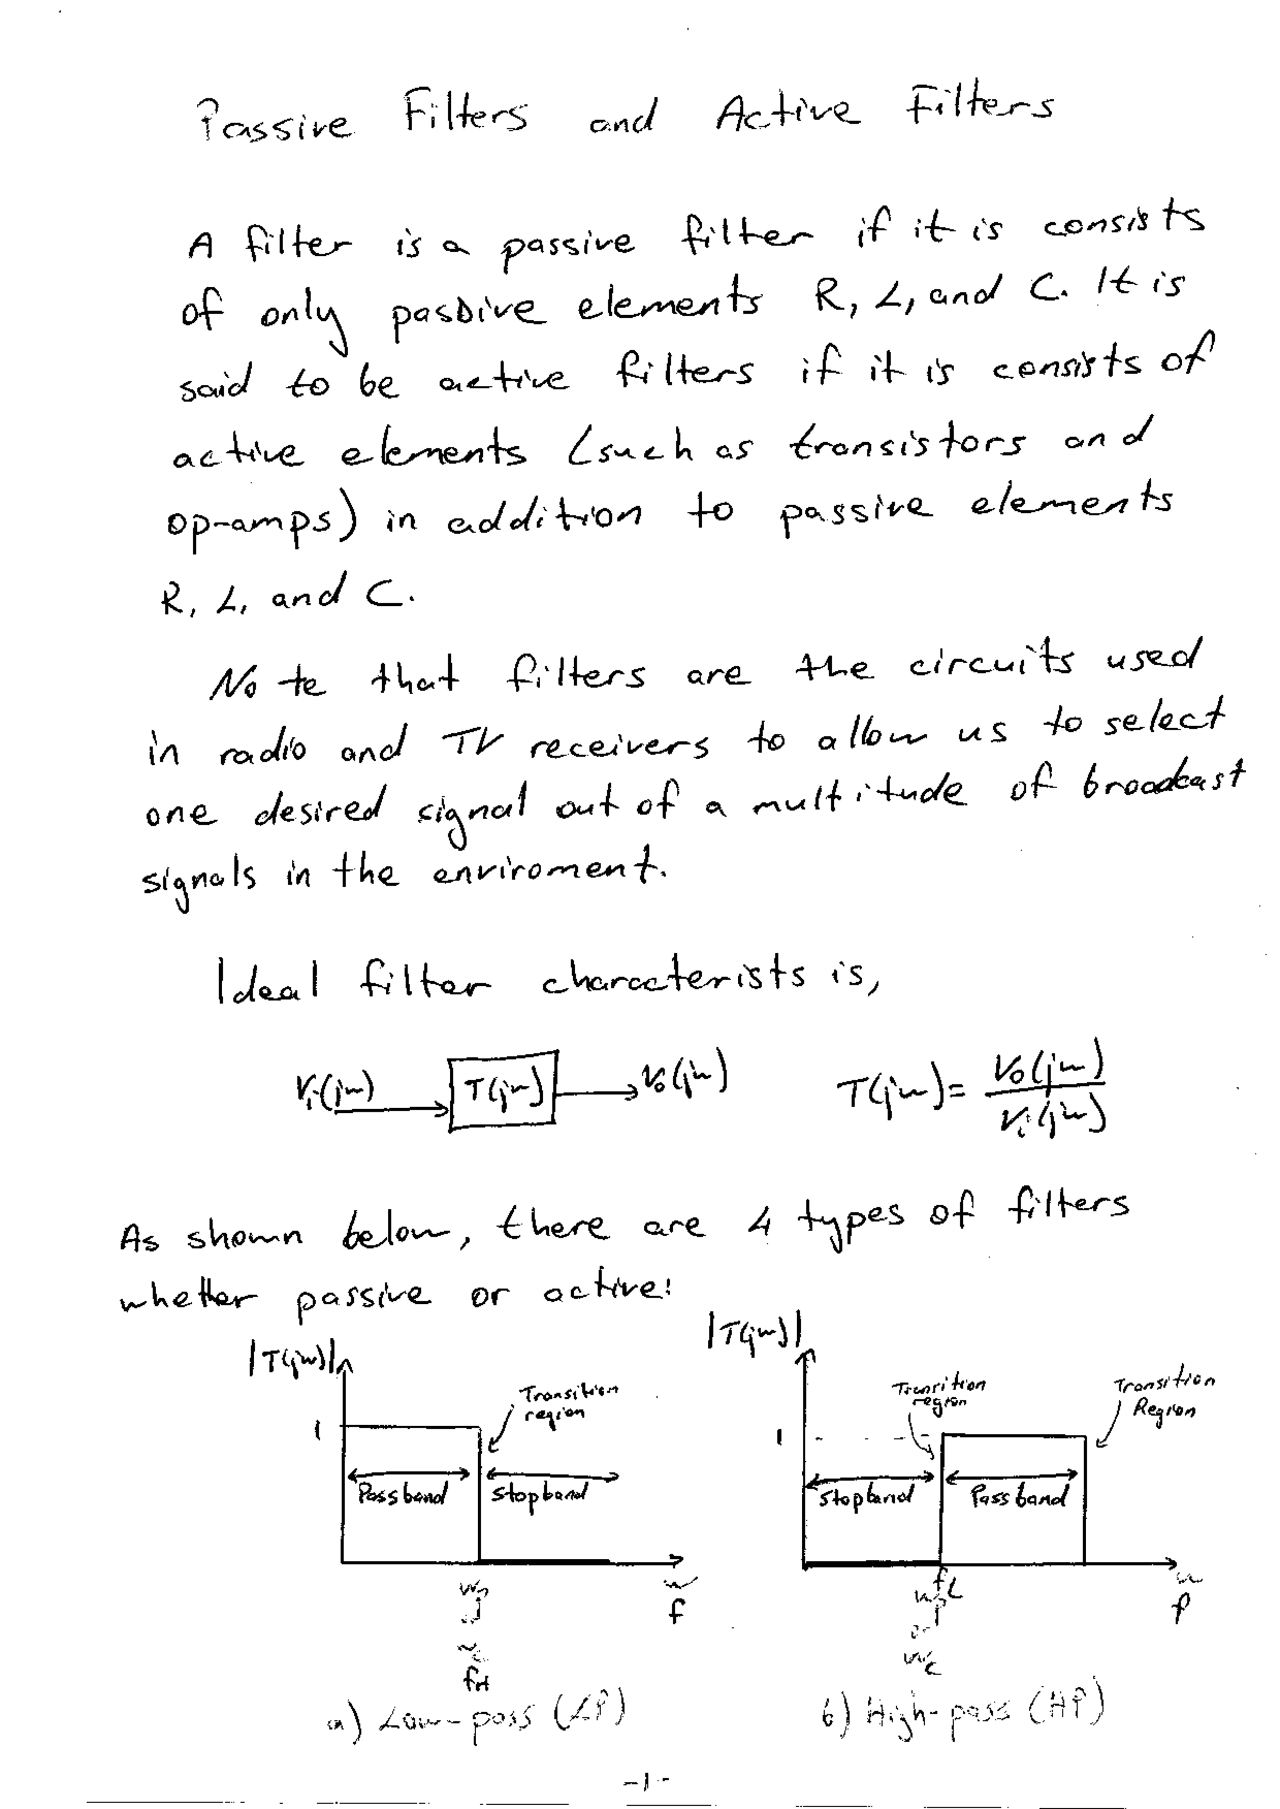 Passive Filters and Active Filters
A filter is a passive filter if it is consists
of only passive elements R, L, and C. It is
said to be active filters if it is consists of
active elements (such as transistors and
op-amps) in addition to passive elements
R, L, and C.
Note that filters are the circuits used
in radio and TV receivers to allow us to select
one desired signal out of a multitude of broadcast
signals in the enviroment.
Ideal filter characterists is,
Vi(jw) T(jw) Vo(jw) T(jw)= Vo(jw)
Vi(jw)
As shown below, there are 4 types of filters
whether passive or active:
|T(jw)| |T(jw)|
Transition
region
Transition
region
Transition
Region
1 1
Passband Stopband Stopband Passband
wp w fL w
f wp f
or
fH wc
a) Low-pass (LP) b) High-pass (HP)
-1-